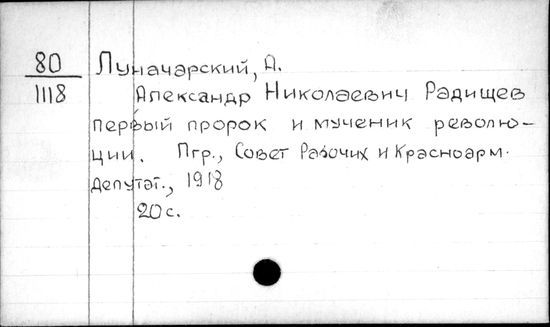 80
1118
Луначарский, А.
Александр Николаевич Радищев
первый пророк и мученик револю-
ции. Пгр., Совет Рабочих и Красноарм.
Депутат., 1918
20 с.